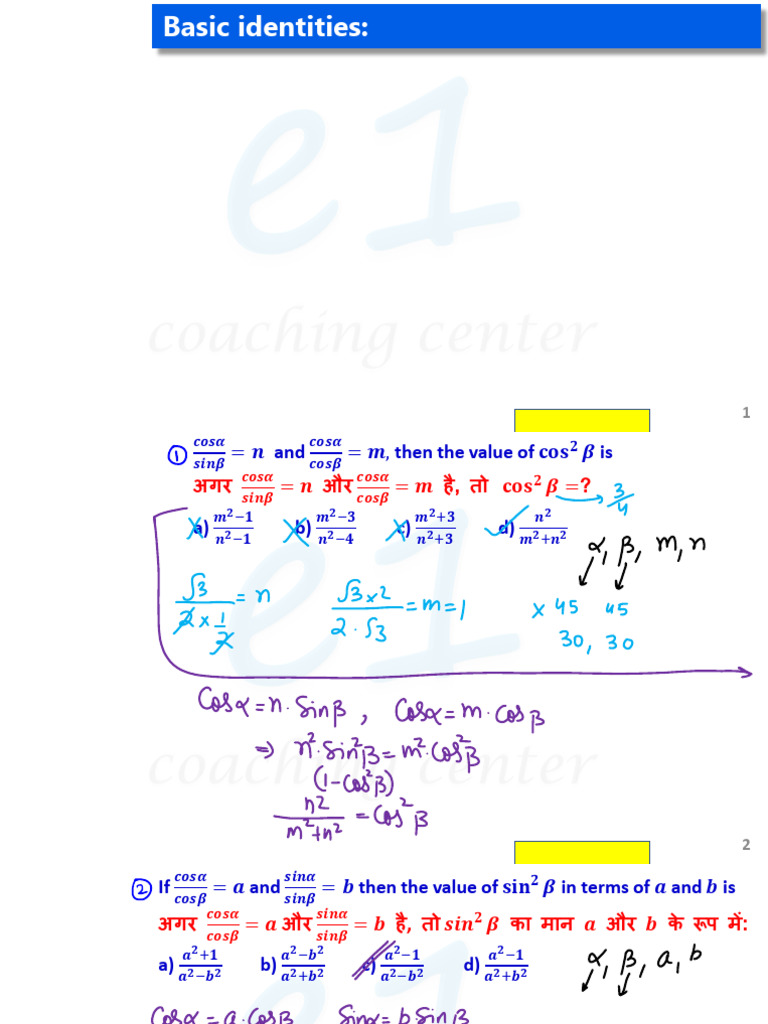 Basic identities:
e1
coaching center
1
① cosα/sinβ = n and cosα/cosβ = m, then the value of cos² β is
अगर cosα/sinβ = n और cosα/cosβ = m है, तो cos² β =? → 3/4
a) m²−1/n²−1 b) m²−3/n²−4 c) m²+3/n²+3 d) n²/m²+n²
α, β, m, n
√3/2×1/2 = n √3×2/2·√3 = m = 1 × 45 45
30, 30
Cosα = n· Sinβ , Cosα = m· Cosβ
⇒ n²·Sin²β = m²·Cos²β
(1-Cos²β)
n2/m²+n² = Cos²β
e1
coaching center
2
② If cosα/cosβ = a and sinα/sinβ = b then the value of sin² β in terms of a and b is
अगर cosα/cosβ = a और sinα/sinβ = b है, तो sin² β का मान a और b के रूप में:
a) a²+1/a²−b² b) a²−b²/a²+b² c) a²−1/a²−b² d) a²−1/a²+b²
α, β, a, b
Cosα = a· Cosβ Sinα = b Sinβ